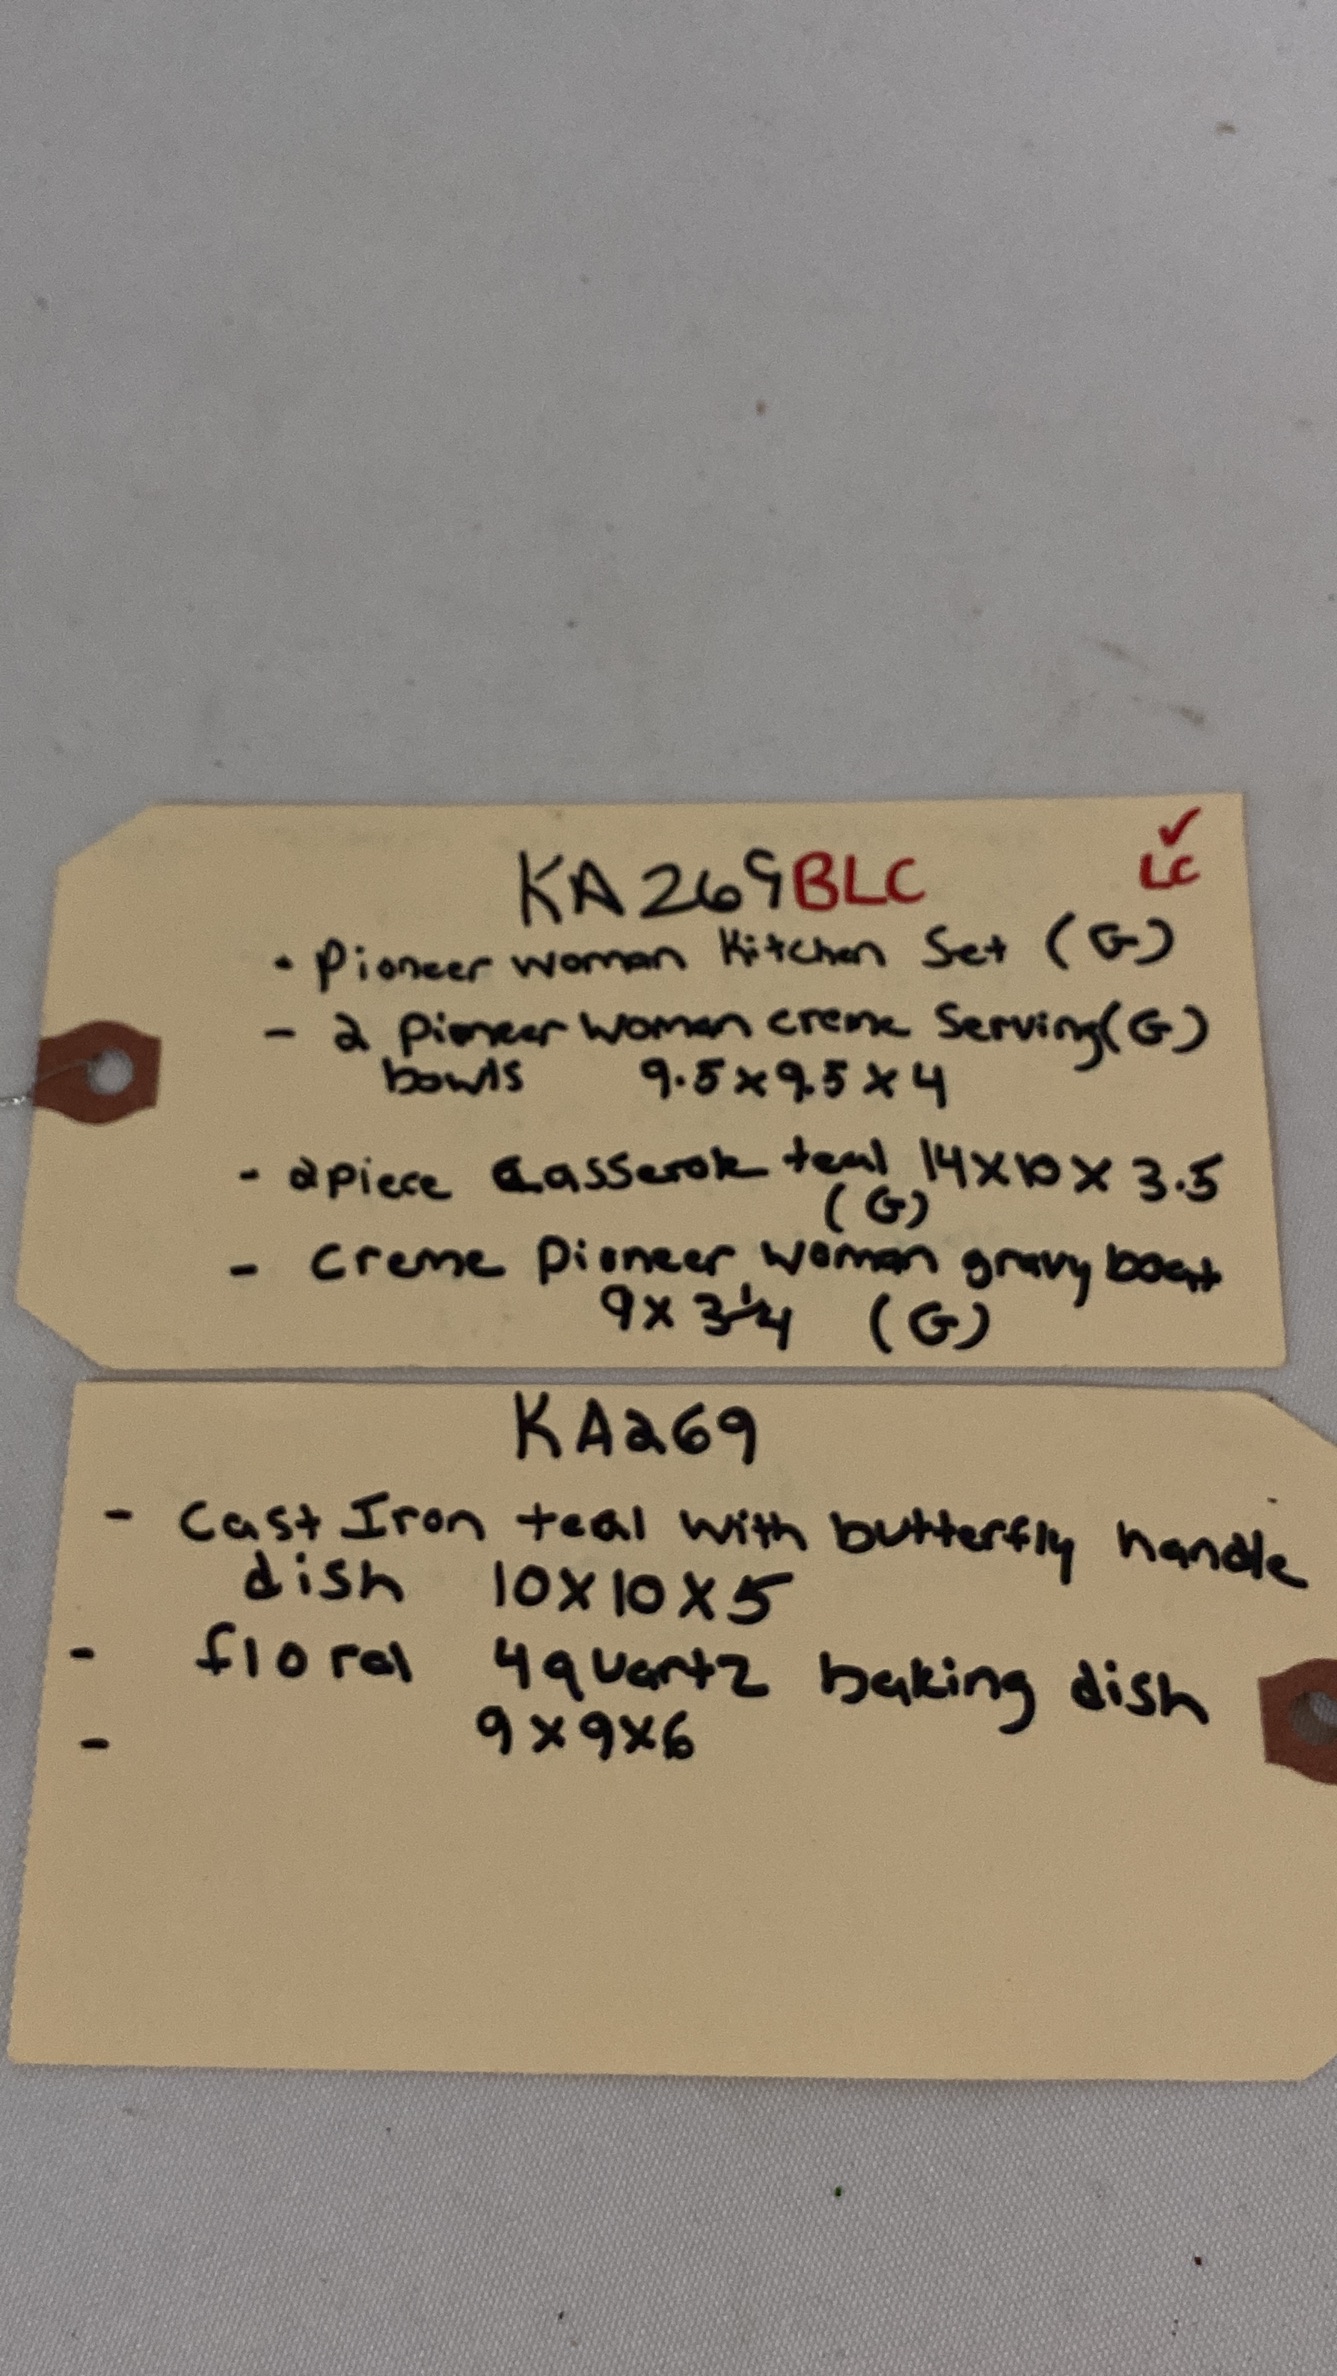 ✓
KA269BLC LC
• Pioneer Woman Kitchen Set (G)
- 2 Pioneer Woman creme Serving (G)
bowls 9.5 x 9.5 x 4
- 2 piece Casserole teal 14 x 10 x 3.5
(G)
- Creme Pioneer Woman gravy boat
9 x 3 1/4 (G)
KA269
- Cast Iron teal with butterfly handle
dish 10 x 10 x 5
- floral 4 quartz baking dish
- 9 x 9 x 6